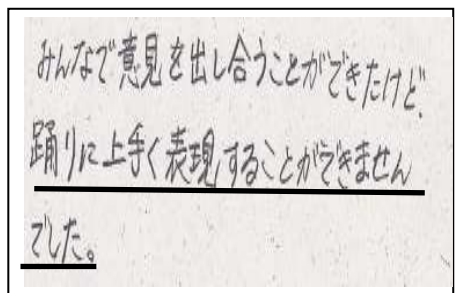 みんなで意見を出し合うことができたけど、
踊りに上手く表現することができません
でした。